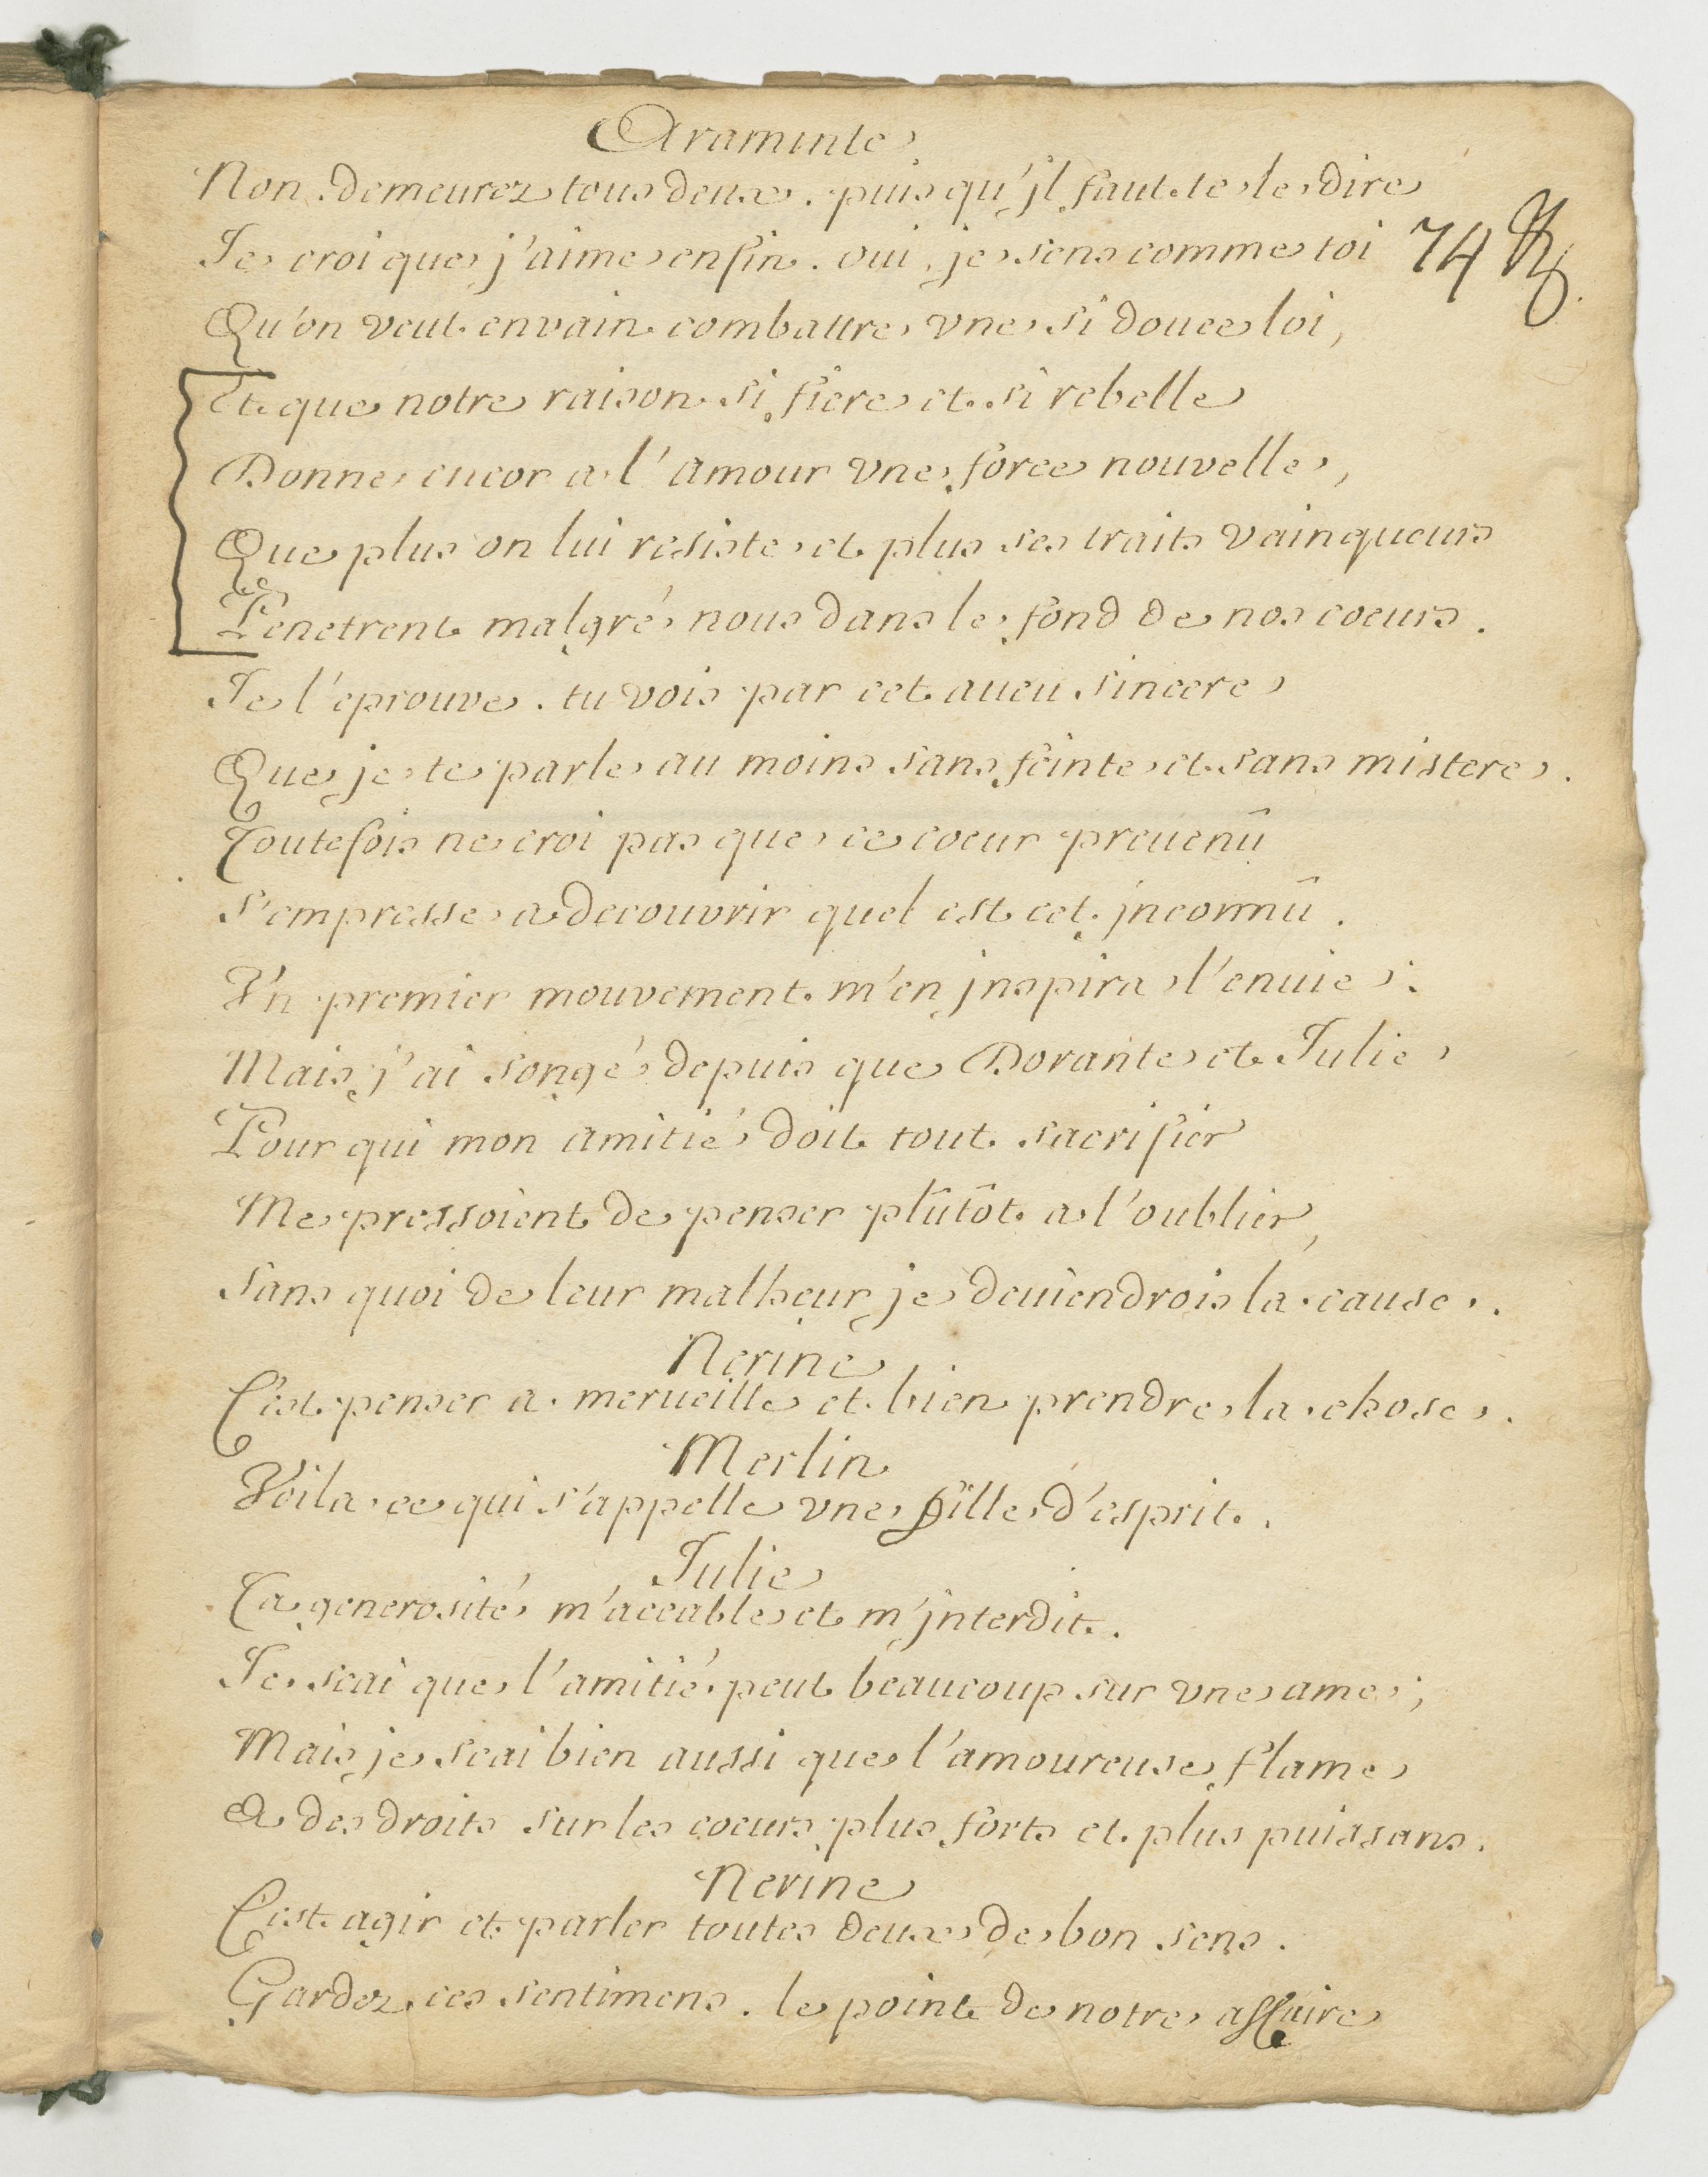 Araminte
Non. demeurez tous deux. puis qu'jl faut te le dire
Je croi que j'aime enfin. oui, je sens comme toi
74
Qu'on veut envain combattre vne si douce loi,
Et que notre raison si fiere et si rebelle
Donne encor a l'amour vne force nouvelle,
Que plus on lui resiste et plus ses traits vainqueurs
Penetrent malgré nous dans le fond de nos coeurs.
Je l'eprouve. tu vois par cet aueu sincere
Que je te parle au moins sans feinte et sans mistere.
Toutefois ne croi pas que ce coeur preuenû
s'empresse a decouvrir quel est cet jnconnû.
Vn premier mouvement m'en jnspira l'enuie:
Mais j'ai songé depuis que Dorante et Julie
Pour qui mon amitié doit tout sacrifier
Me pressoient de penser plûtôt a l'oublier,
sans quoi de leur malheur je deuiendrois la cause.
Nerine
C'est penser a merueille et bien prendre la chose.
Merlin
Voila ce qui s'appelle vne fille d'esprit.
Julie
Ta generosité m'accable et m'jnterdit.
Je scai que l'amitié peut beaucoup sur vne ame;
Mais je scai bien aussi que l'amoureuse flame
A des droits sur les coeurs plus forts et plus puissans.
Nerine
C'est agir et parler toutes deux de bon sens.
Gardez ces sentimens. le point de notre affaire